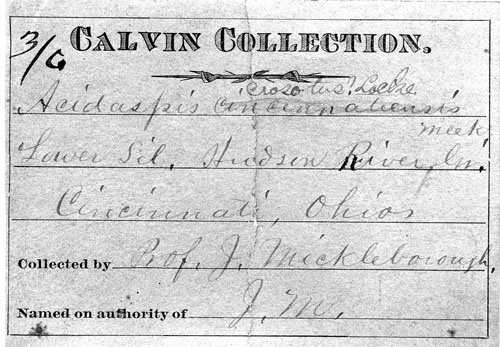 3/6
CALVIN COLLECTION.
crosotus? Locke.
Acidaspis cincinnatiensis
meek
Lower Sil. Hudson River, Gr.
Cincinnati, Ohio
Collected by Prof. J. Mickleborough.
Named on authority of J. M.